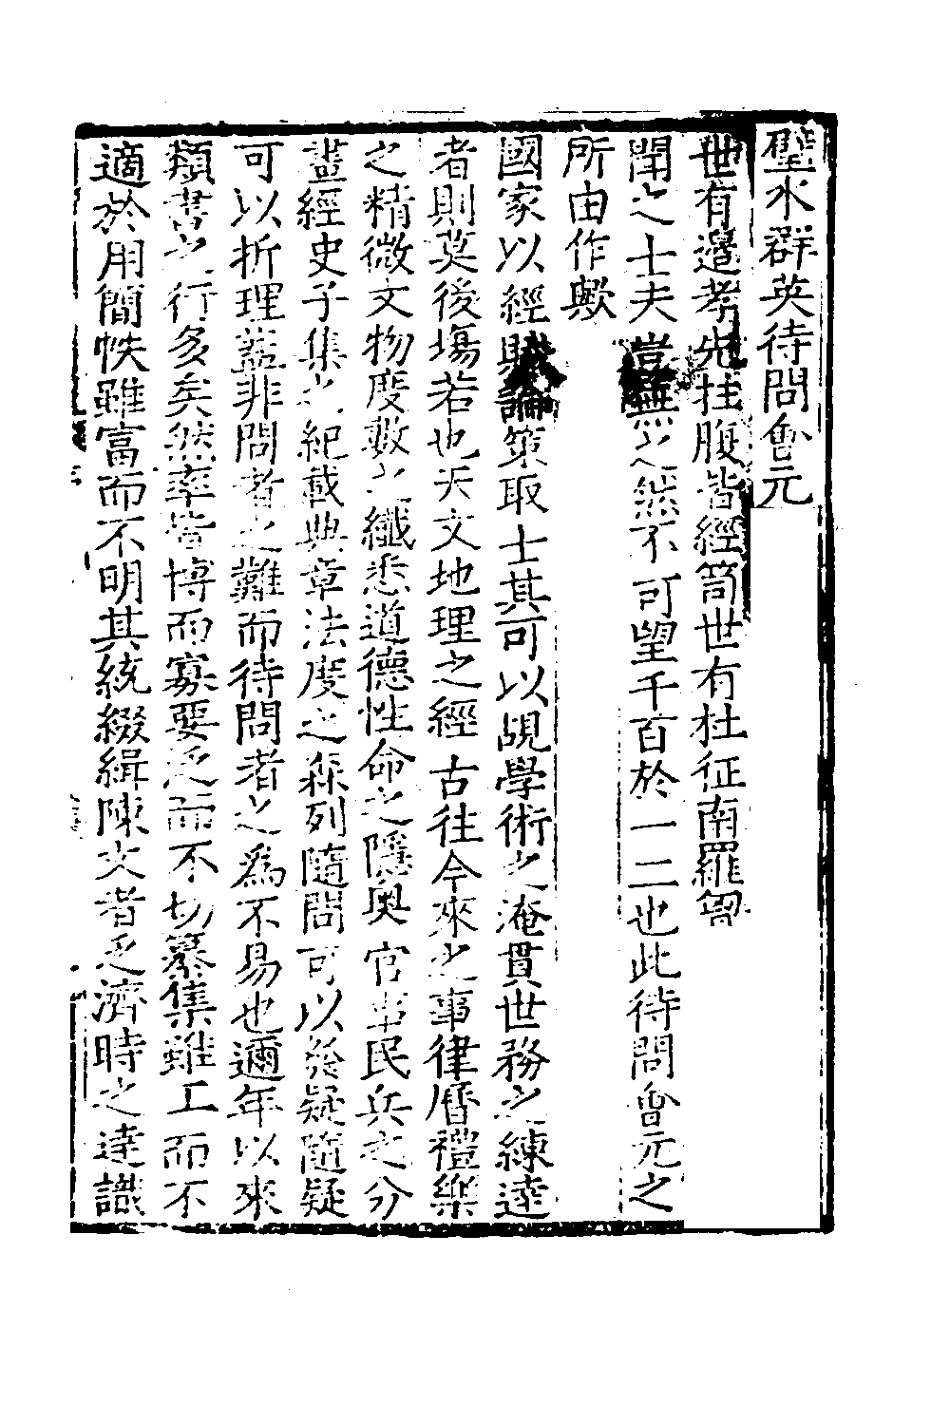 璧水群英待問會元
世有邉孝先拄腹皆經笥世有杜征南羅胷
聞之士夫豈無之然不可望千百於一二也此待問會元之
所由作歟
國家以經賦論策取士其可以覘學術之淹貫世務之練達
者則莫後塲若也天文地理之經古往今來之事律曆禮樂
之精微文物度數之纖悉道德性命之隱奥官事民兵之分
蓋經史子集之紀載典章法度之森列隨問可以祭疑隨疑
可以折理蓋非問者之難而待問者之為不易也邇年以來
類書之行多矣然率皆博而寡要泛而不切纂集雖工而不
適於用簡帙雖富而不明其統綴緝陳文者乏濟時之逹識